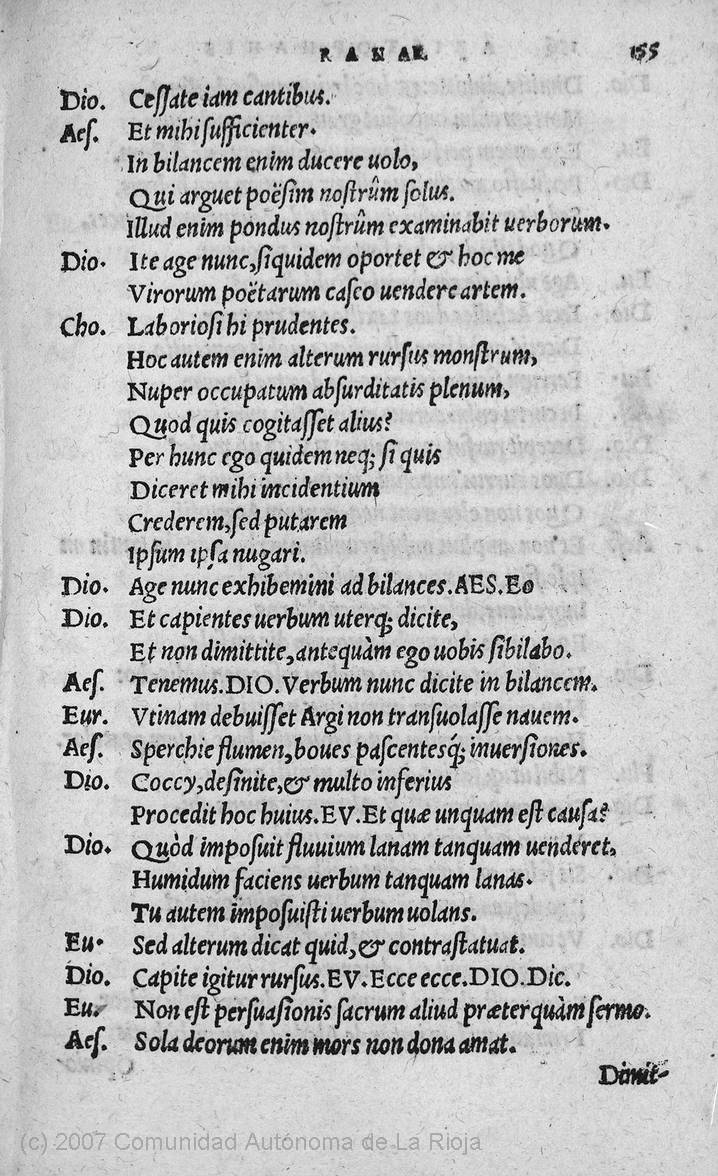 RANAE. 155
Dio. Ceſſate iam cantibus.
Aeſ. Et mihi ſufficienter.
In bilancem enim ducere uolo,
Qui arguet poëſim noſtrûm ſolus.
Illud enim pondus noſtrûm examinabit uerborum.
Dio. Ite age nunc, ſiquidem oportet & hoc me
Virorum poëtarum caſeo uendere artem.
Cho. Laborioſi hi prudentes.
Hoc autem enim alterum rurſus monſtrum,
Nuper occupatum abſurditatis plenum,
Quod quis cogitaſſet alius?
Per hunc ego quidem neq; ſi quis
Diceret mihi incidentium
Crederem, ſed putarem
Ipſum ipſa nugari.
Dio. Age nunc exhibemini ad bilances. AES. Eo
Dio. Et capientes uerbum uterq; dicite,
Et non dimittite, antequàm ego uobis ſibilabo.
Aeſ. Tenemus. DIO. Verbum nunc dicite in bilancem.
Eur. Vtinam debuiſſet Argi non tranſuolaſſe nauem.
Aeſ. Sperchie flumen, boues paſcentesq́; inuerſiones.
Dio. Coccy, deſinite, & multo inferius
Procedit hoc huius. EV. Et quæ unquam eſt cauſa?
Dio. Quòd impoſuit fluuium lanam tanquam uenderet,
Humidum faciens uerbum tanquam lanas.
Tu autem impoſuiſti uerbum uolans.
Eu. Sed alterum dicat quid, & contraſtatuat.
Dio. Capite igitur rurſus. EV. Ecce ecce. DIO. Dic.
Eu. Non eſt perſuaſionis ſacrum aliud præterquàm ſermo.
Aeſ. Sola deorum enim mors non dona amat.
Dimit-
(c) 2007 Comunidad Autónoma de La Rioja